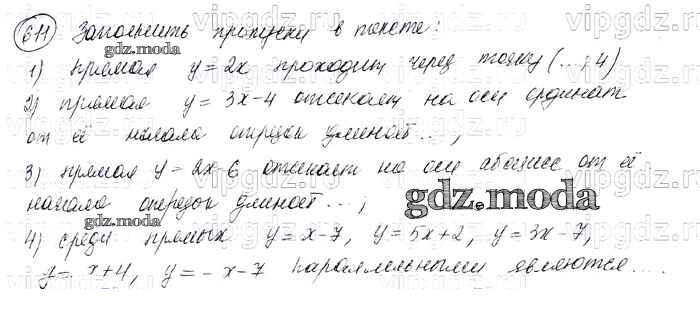 611 Заполнить пропуски в тексте:
gdz.moda
1) прямая y = 2x проходит через точку (...; 4)
2) прямая y = 3x-4 отсекает на оси ординат
от её начала отрезок длиной ...;
3) прямая y = 2x-6 отсекает на оси абсцисс от её
начала отрезок длиной ...;
gdz.moda
gdz.moda
4) среди прямых y = x-7, y = 5x+2, y = 3x-7,
y = x+4, y = -x-7 параллельными являются ...